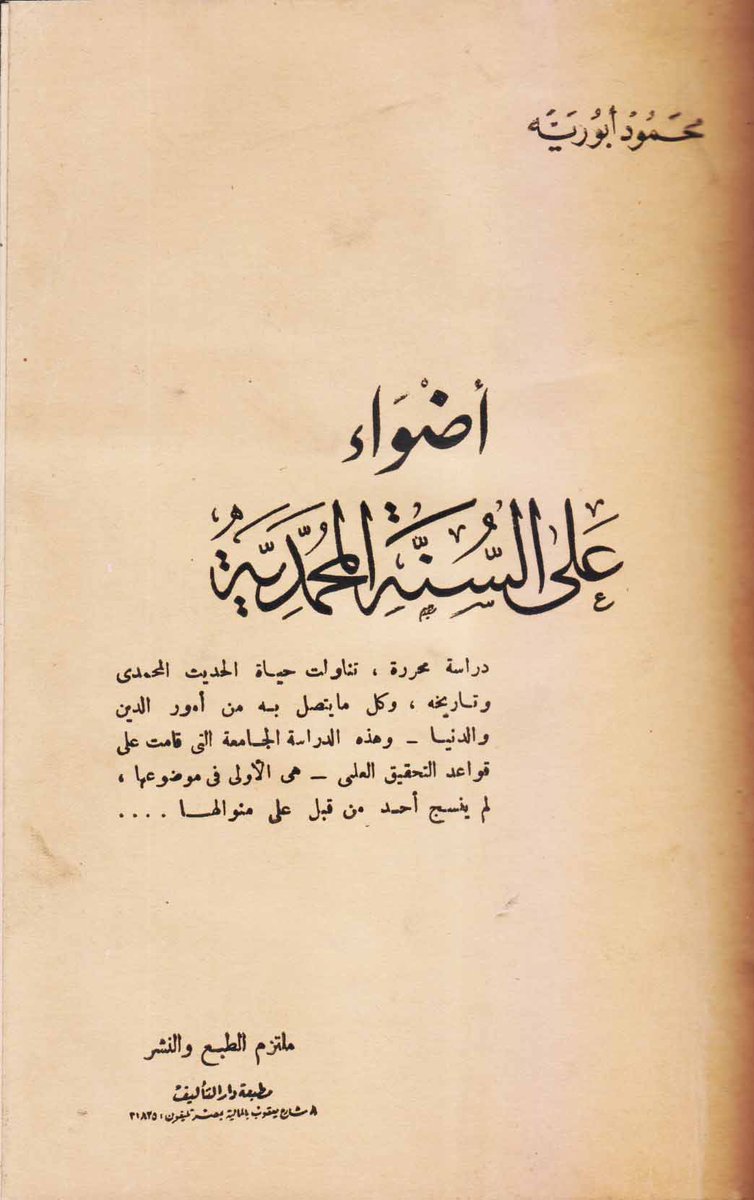 محمود أبوريّه
أضْوَاء
عَلى السُّنَّةِ المحُمَّديَّة
دراسة محررة ، تناولت حياة الحديث المحمدى
وتاريخه ، وكل مايتصل به من أمور الدين
والدنيا – وهذه الدراسة الجامعة التى قامت على
قواعد التحقيق العلمى – هى الأولى فى موضوعها ،
لم ينسج أحد من قبل على منوالها ....
ملتزم الطبع والنشر
مطبعة دار التأليف
٨ شارع يعقوب بالمالية بمصر تليفون : ٣١٨٢٥